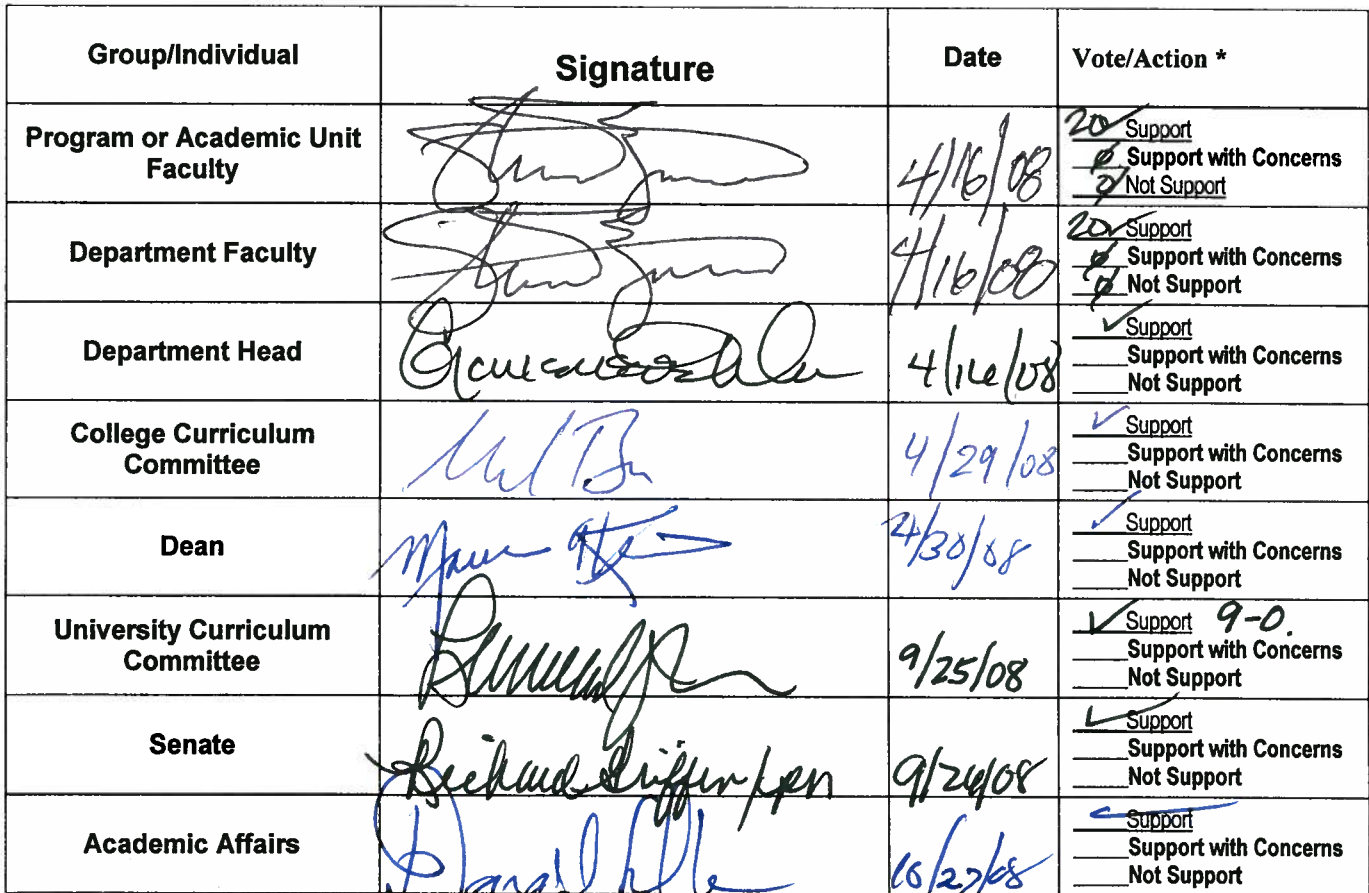 Group/Individual Signature Date Vote/Action *
Program or Academic Unit Faculty 4/16/08 20 ✓ Support
0 Support with Concerns
0 Not Support
Department Faculty 4/16/08 20 ✓ Support
0 Support with Concerns
0 Not Support
Department Head 4/16/08 ✓ Support
Support with Concerns
Not Support
College Curriculum Committee 4/29/08 ✓ Support
Support with Concerns
Not Support
Dean 4/30/08 ✓ Support
Support with Concerns
Not Support
University Curriculum Committee 9/25/08 ✓ Support 9-0.
Support with Concerns
Not Support
Senate Richard Griffin 9/26/08 ✓ Support
Support with Concerns
Not Support
Academic Affairs 10/27/08 ✓ Support
Support with Concerns
Not Support